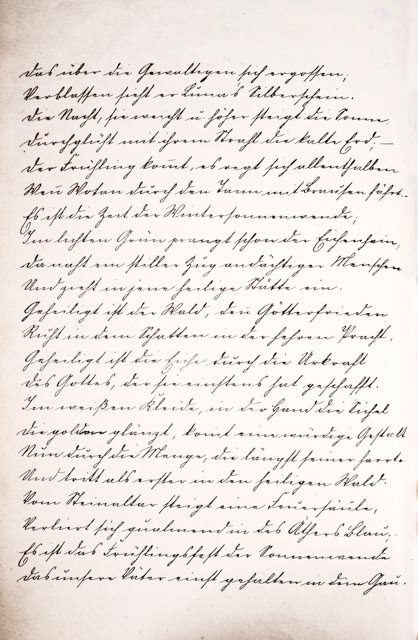 Das über die Gewaltigen sich ergossen,
Verblassen sieht er Luna's Silberschein.
Die Nacht, sie weicht u höher steigt die Sonne
Durchglüht mit ihrem Strahl die kalte Erd, —
Der Frühling kom̄t, es regt sich allenthalben
Wen̄ Wotan durch den Tann mit Brausen fährt. -
Es ist die Zeit der Wintersonnenwende;
Im lichten Grün prangt schon der Eichenhain,
Da naht ein stiller Zug andächtiger Menschen
Und zieht in jene heilige Stätte ein.
Geheiligt ist der Wald, den̄ Götterfrieden
Ruht in dem Schatten in der hehren Pracht,
Geheiligt ist die Eiche durch die Urkraft
Des Gottes, der sie einstens hat geschafft.
Im weißen Kleide, in der Hand die Sichel
Die golden glänzt, kom̄t eine würdige Gestalt
Nun durch die Menge, die längst seiner harrte
Und tritt als erster in den heiligen Wald.
Vom Steinaltar steigt eine Feuersäule,
Verliert sich qualmend in des Äthers Blau, -
Es ist das Frühlingsfest der Sonnenwende
Das unsere Väter einst gehalten in dem Gau.